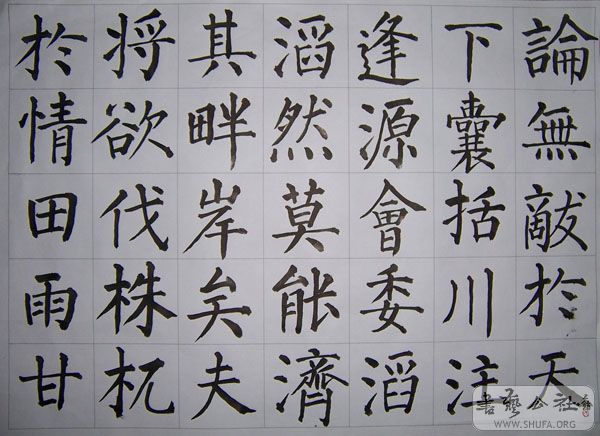 論無敵於天
下囊括川注
逢源會委滔
滔然莫能濟
其畔岸矣夫
将欲伐株杌
於情田雨甘
書藝公社
WWW.SHUFA.ORG